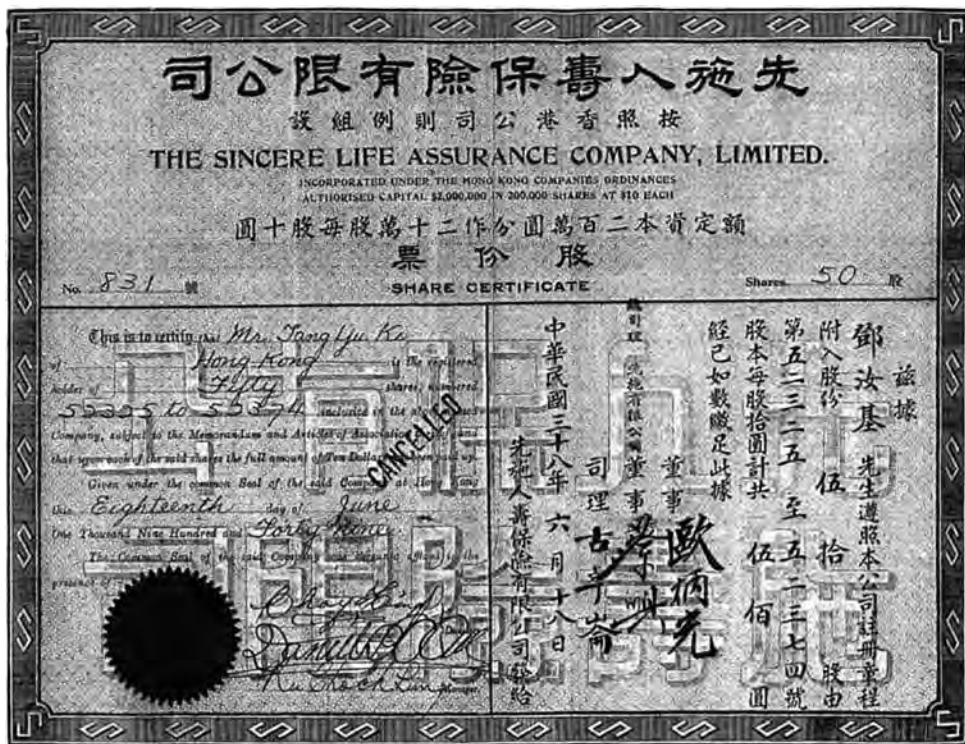 先施人壽保險有限公司
按照香港公司則例組設
THE SINCERE LIFE ASSURANCE COMPANY, LIMITED.
INCORPORATED UNDER THE HONG KONG COMPANIES ORDINANCES
AUTHORISED CAPITAL $2,000,000 IN 200,000 SHARES AT $10 EACH
額定資本二百萬圓分作二十萬股每股十圓
股份票
No. 831 號
SHARE CERTIFICATE
Shares 50 股
This is to certify that Mr. Tang Yu Ki
of Hong Kong is the registered
holder of Fifty shares, numbered
52325 to 52374 included in the above
Company, subject to the Memorandum and Articles of Association and
that upon each of the said shares the full amount of Ten Dollars been paid up.
Given under the common Seal of the said Company at Hong Kong
this Eighteenth day of June
One Thousand Nine Hundred and Forty Nine.
The Common Seal of the said Company was hereunto affixed in the
presence of
Manager.
CANCELLED
茲據
鄧汝基先生遵照本公司註冊章程
附入股份伍拾股由
第五二三二五至五二三七四號
股本每股拾圓計共伍佰圓
經已如數繳足此據
總司理 先施有限公司
董事
董事
司理
中華民國三十八年六月十八日
先施人壽保險有限公司發給